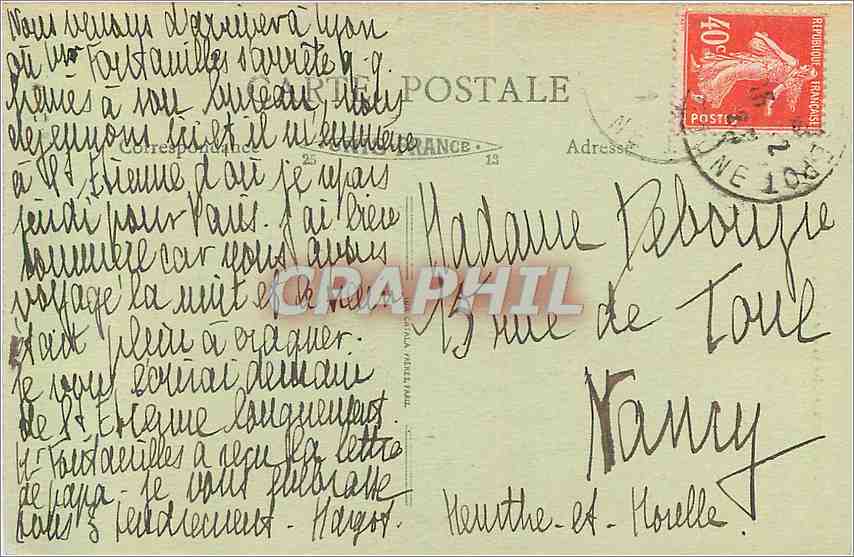 Nous venons d'arriver à Lyon
où Mr Fontanilles s'arrête q. q.
heures à son bureau, nous
déjeunons ici et il m'emmène
à St Etienne d'où je repars
jeudi pour Paris. J'ai bien
sommeil car nous avons
voyagé la nuit et le train
était plein à craquer.
Je vous écrirai demain
de St Etienne longuement.
Mr Fontanilles a reçu la lettre
de papa - je vous embrasse
tous 3 tendrement - Margot.
CARTE POSTALE
Correspondance
25 FRANCE 13
Adresse
RÉPUBLIQUE FRANÇAISE
40c
POSTES
Madame Debouzie
15 rue de Toul
Nancy
Meurthe-et-Moselle.
CRAPHIL